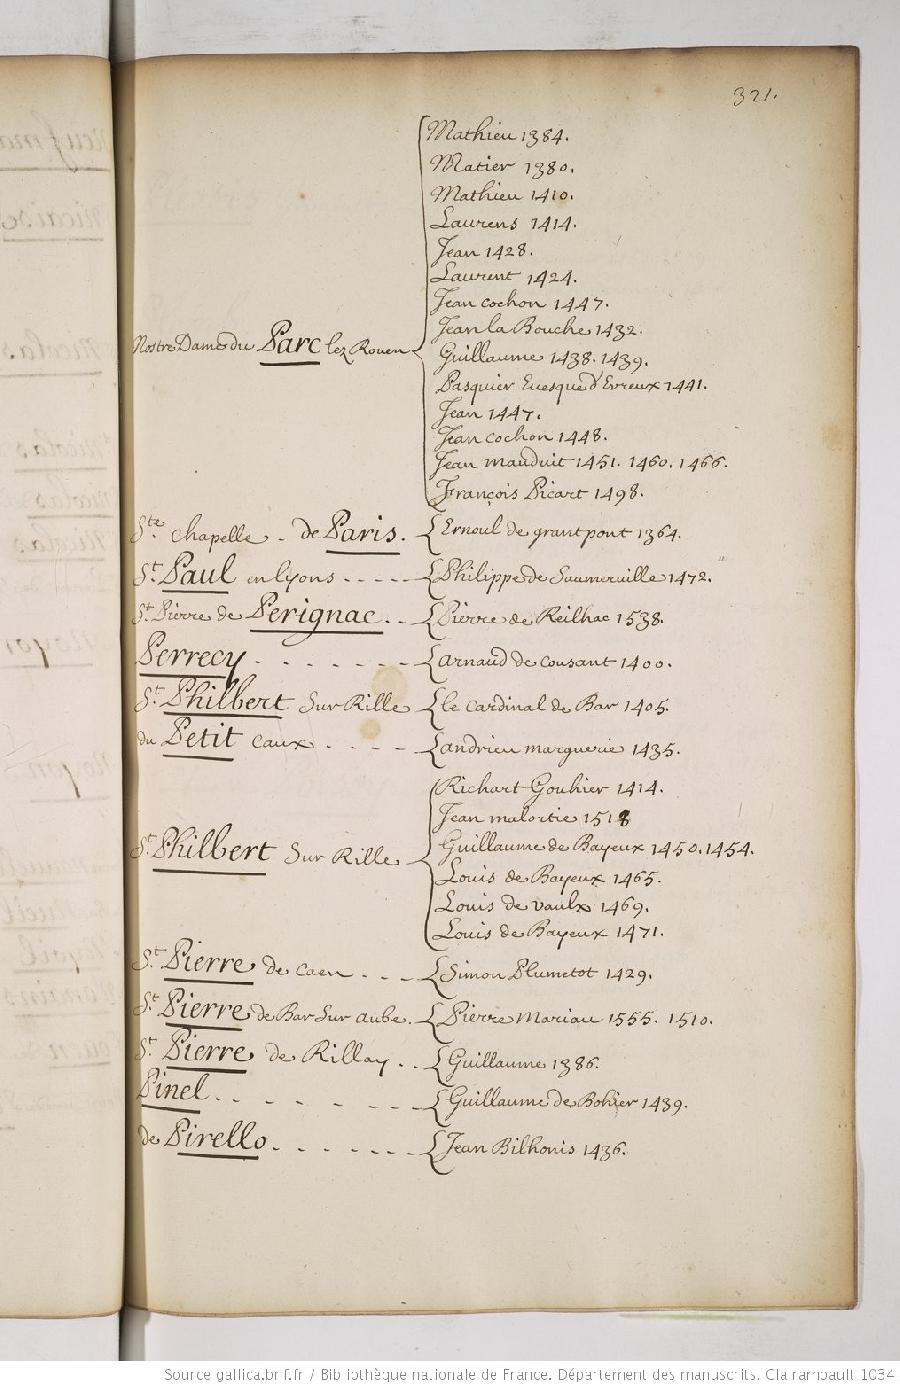 321.
Mathieu 1384.
Matier 1380.
Mathieu 1410.
Laurens 1414.
Jean 1428.
Laurent 1424.
Jean cochon 1447.
Jean la Bouche 1432.
Nostre Dame du Parc lez Rouen
Guillaume 1438. 1439.
Pasquier Euesque d'Evreux 1441.
Jean 1447.
Jean cochon 1448.
Jean mauduit 1451. 1460. 1466.
François Picart 1498.
Ste. chapelle - de Paris. Ernoul de grantpont 1364.
St. Paul en lyons - - - - - Philippe de Saumerville 1472.
St. Pierre de Perignac. - - Pierre de Reilhac 1538.
Perrecy - - - - - - - arnaud de cousant 1400.
St. Philbert Sur Rille le cardinal de Bar 1405.
du Petit caux - - - - - andrieu marguerie 1435.
Richart Gouhier 1414.
Jean malortie 1518
St. Philbert Sur Rille Guillaume de Bayeux 1450. 1454.
Louis de Bayeux 1465.
Louis de vaulx 1469.
Louis de Bayeux 1471.
St. Pierre de caen - - - Simon Plumetot 1429.
St. Pierre de Bar Sur Aube. Pierre Mariau 1555. 1510.
St. Pierre de Rillay - - Guillaume 1386.
Pinel - - - - - - - - Guillaume de Bohier 1439.
de Pirello - - - - - - - Jean Bilhonis 1436.
Source gallica.bnf.fr / Bibliothèque nationale de France. Département des manuscrits. Clairambault 1034